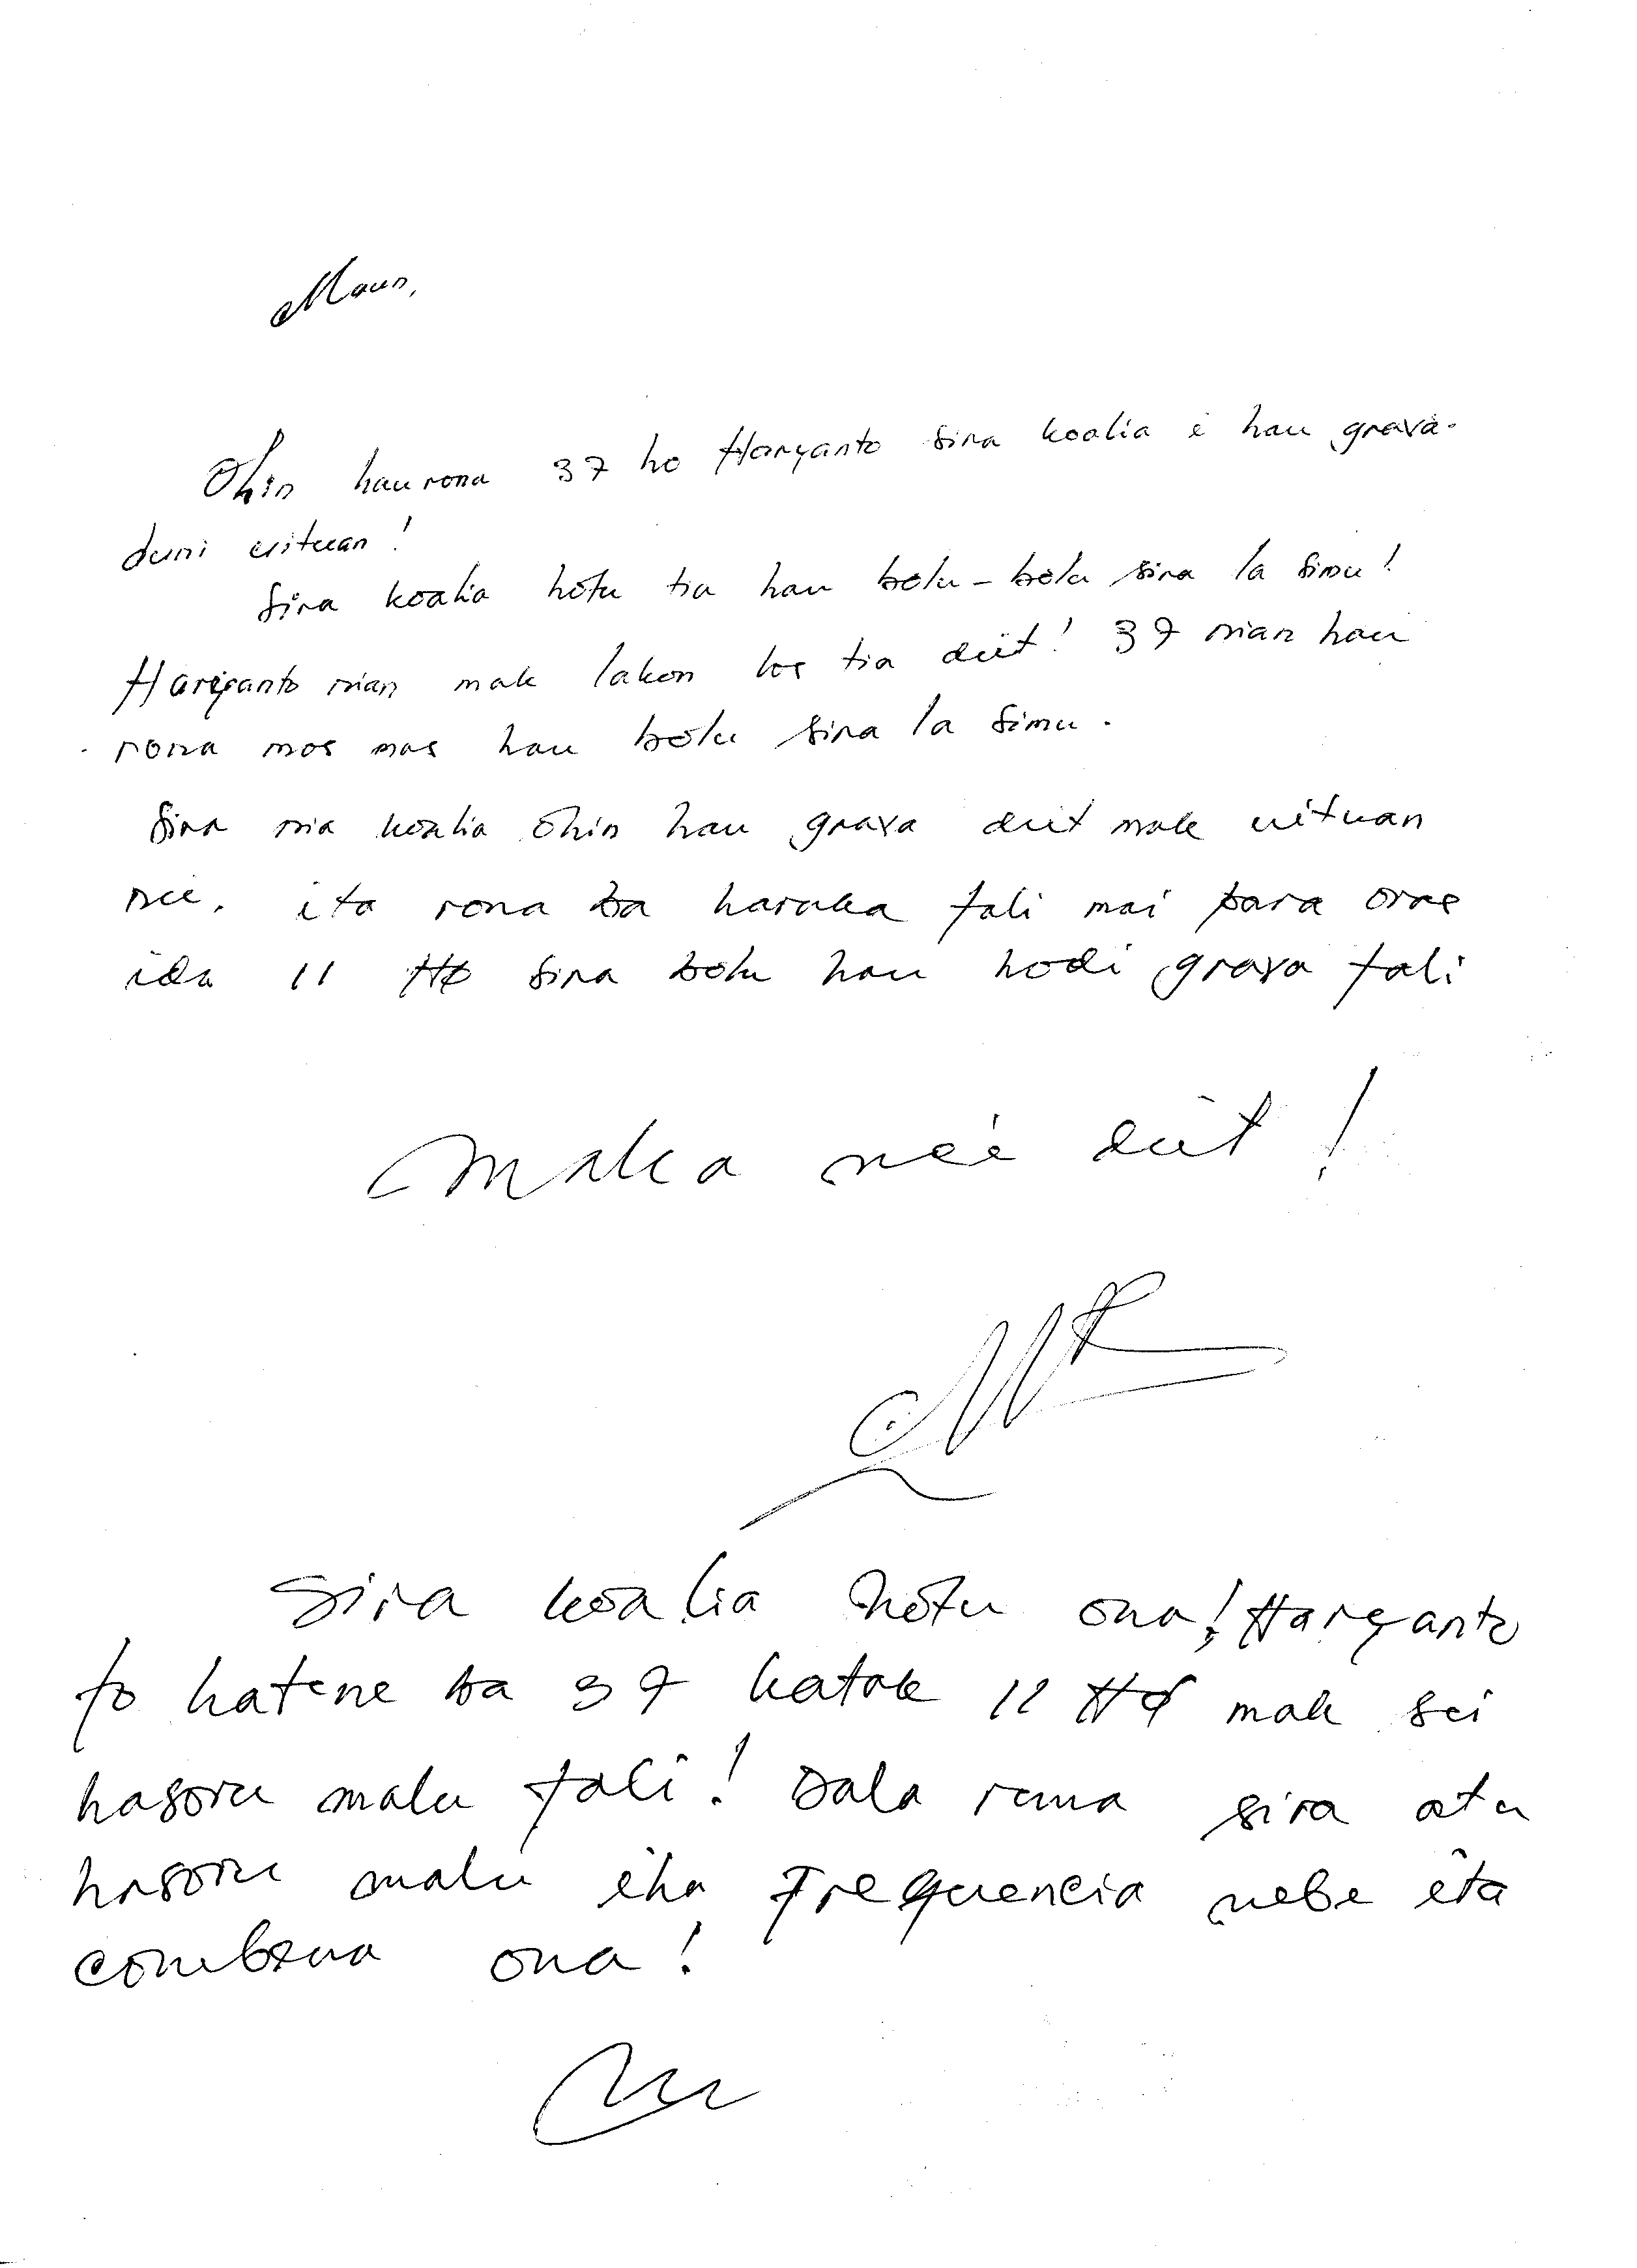 Maun,
Ohin hau rona 37 ho Haryanto sira koalia e hau grava-
duni uituan!
Sira koalia hotu tia hau bolu-bolu sira la simu!
Hariyanto nian mak lakon los tia deit! 37 nian hau
rona mos mas hau bolu sira la simu.
Sira nia koalia ohin hau grava deit mak uituan
nee. ita rona ba haruka fali mai para oras
ida 11 HØ sira bolu hau hodi grava fali
Maka neé deit!
Sira koalia hotu ona! Haryanto
fo hatene ba 37 katak 11 HØ mak sei
hasoru malu fali! Dala ruma sira atu
hasoru malu iha Frequencia nebe ita
combina ona!